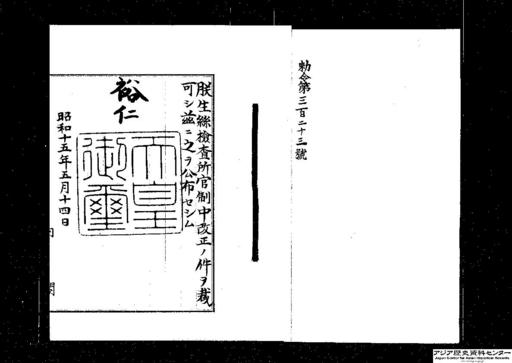 勅令第三百二十三號
朕生絲檢査所官制中改正ノ件ヲ裁
可シ茲ニ之ヲ公布セシム
裕仁
天皇
御璽
昭和十五年五月十四日
内閣
アジア歴史資料センター
Japan Center for Asian Historical Records